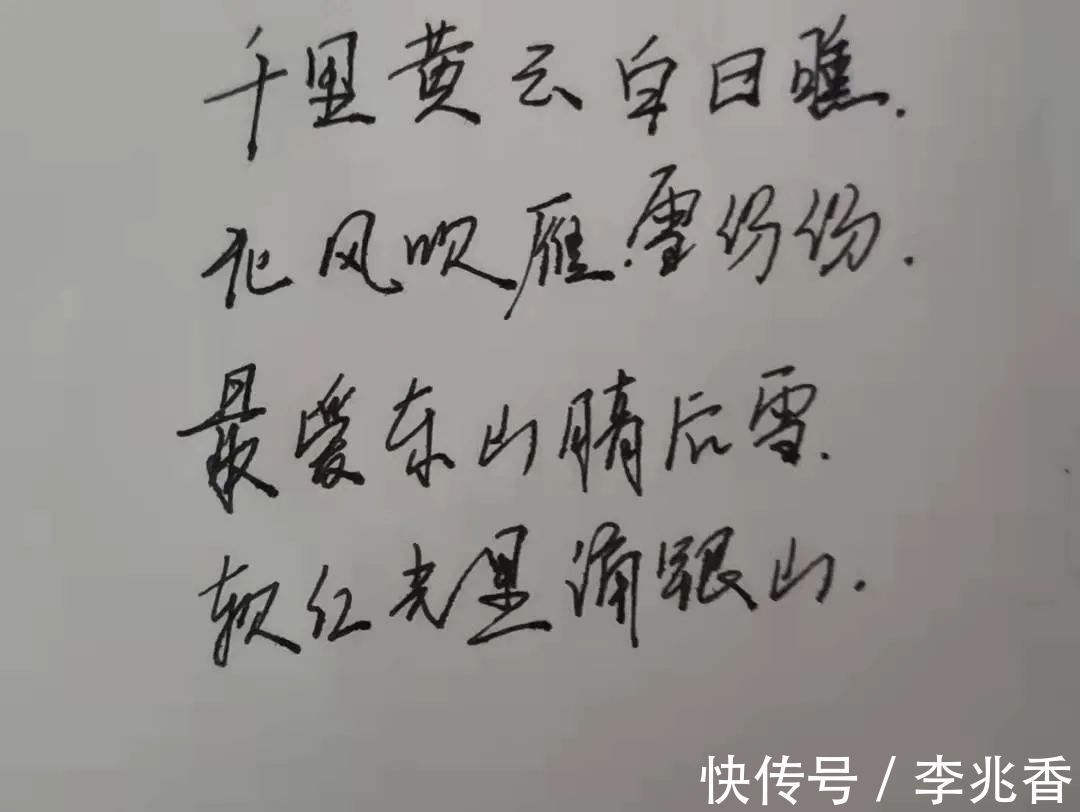 千里黄云白日瞧.
北风吹雁雪份份.
最爱东山腈后雪.
软红光里涌银山.
快传号 / 李兆香